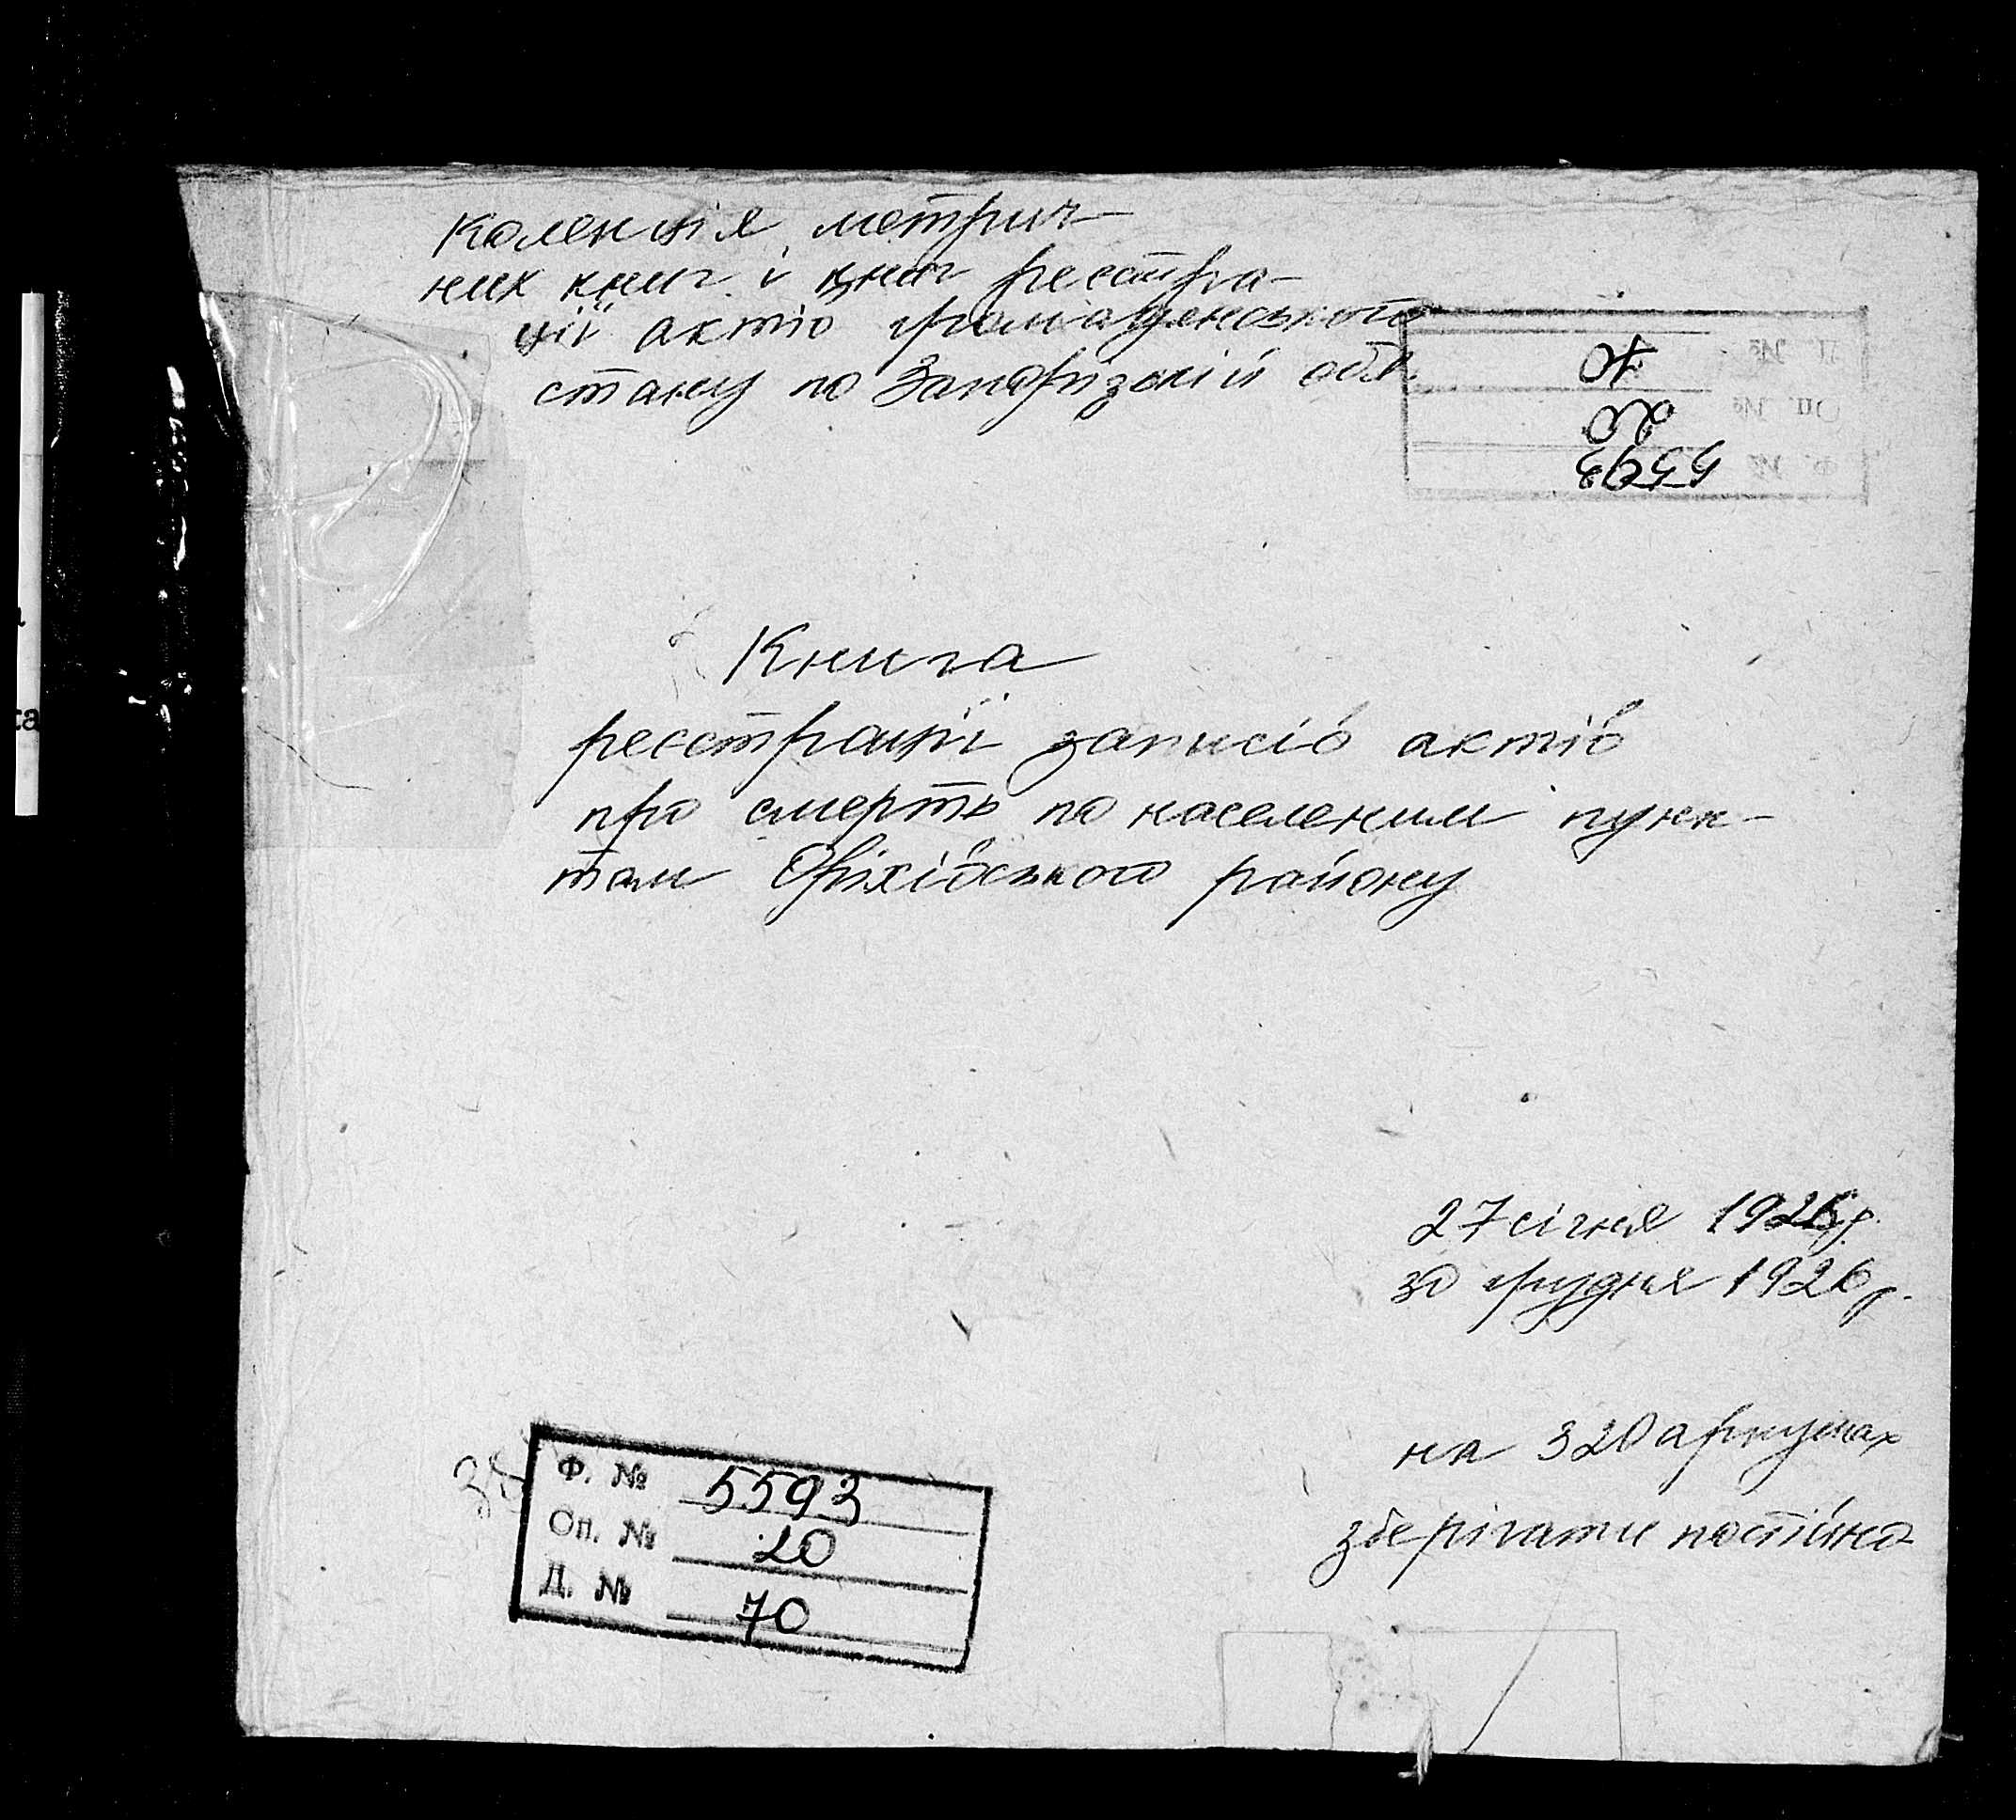 Колекція метрич-
них книг і книг реєстра-
ції актів громадянського
стану по Запорізькій обл.
Д. № 70
Оп. № 20
Ф. № 5593
Книга
реєстрації записів актів
про смерть по населеним пунк-
там Оріхівського району
27 січня 1926 р.
30 грудня 1926 р.
на 320 аркушах
зберігати постійно
Ф. № 5593
Оп. № 20
Д. № 70